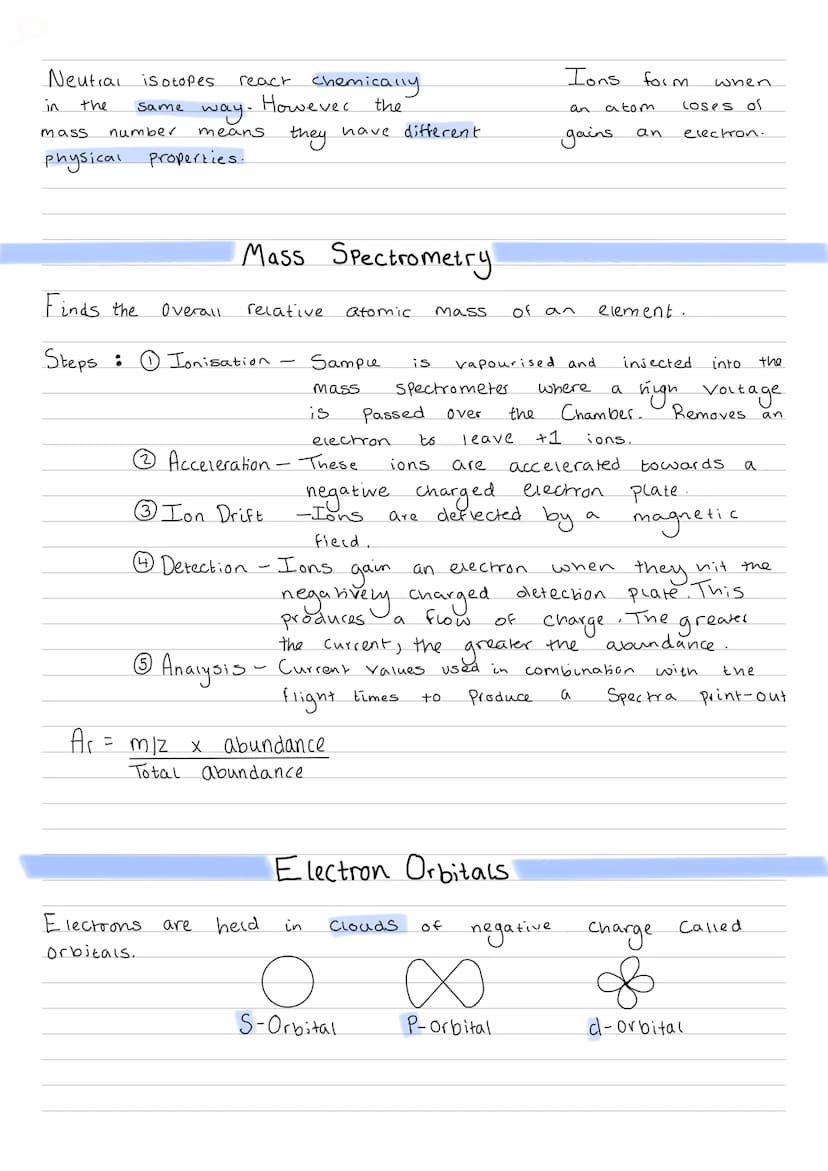 Neutral isotopes react chemically
in the same way. However the
mass number means they have different
physical properties.
Ions form when
an atom loses or
gains an electron.
Mass Spectrometry
Finds the overall relative atomic mass of an element.
Steps : ① Ionisation – Sample is vapourised and injected into the
mass spectrometer where a high voltage
is passed over the Chamber. Removes an
electron to leave +1 ions.
② Acceleration – These ions are accelerated towards a
negative charged electron plate.
③ Ion Drift – Ions are deflected by a magnetic
field.
④ Detection – Ions gain an electron when they hit the
negatively charged detection plate. This
produces a flow of charge. The greater
the current, the greater the abundance.
⑤ Analysis – Current values used in combination with the
flight times to produce a Spectra print-out
Ar = m/z x abundance
Total abundance
Electron Orbitals
Electrons are held in clouds of negative charge called
orbitals.
S-Orbital P-orbital d-orbital